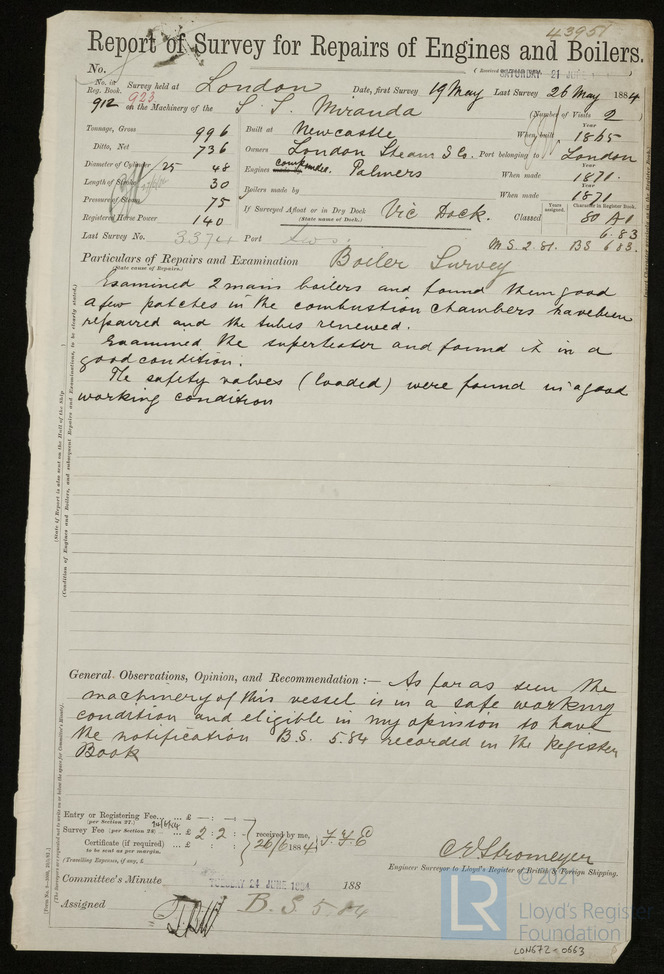 43951
Report of Survey for Repairs of Engines and Boilers.
No.
(Received
SATURDAY 21 JUNE
No. in Reg. Book. Survey held at London Date, first Survey 19 May Last Survey 26 May 1884
912 923 on the Machinery of the S. S. Miranda (Number of Visits 2
Tonnage, Gross 996 Built at Newcastle When built Year 1865
Ditto, Net 736 Owners London Steam S Co. Port belonging to London
Diameter of Cylinder 25 48 Engines made by Palmers When made Year 1871.
Length of Stroke 30 Boilers made by When made Year 1871
Pressure of Steam 75 If Surveyed Afloat or in Dry Dock Vic Dock. Classed Years assigned. Character in Register Book. 80 A1
(State name of Dock.)
Registered Horse Power 140 6.83
Last Survey No. 3374 Port M.S. 2.81. BS 6 83.
Particulars of Repairs and Examination Boiler Survey
(State cause of Repairs.)
Examined 2 main boilers and found them good
a few patches in the combustion chambers have been
repaired and the tubes renewed.
Examined the superheater and found it in a
good condition.
The safety valves (loaded) were found in a good
working condition
(State if Report is also sent on the Hull of the Ship
(Condition of Engines and Boilers, and subsequent Repairs and Examinations, to be clearly stated.)
General Observations, Opinion, and Recommendation :— As far as seen the
machinery of this vessel is in a safe working
condition and eligible in my opinion to have
the notification B.S. 5.84 recorded in the Register
Book
Entry or Registering Fee... £ — : — :
(per Section 27.)
Survey Fee (per Section 28) ... £ 2 : 2 : - received by me,
Certificate (if required) ... £ : : 26/6 1884
to be sent as per margin.
(Travelling Expenses, if any, £ )
C E Stromeyer
Engineer Surveyor to Lloyd's Register of British & Foreign Shipping.
Committee's Minute TUESDAY 24 JUNE 1884 188
Assigned B. S. 5. 84
© 2021
LR
Lloyd's Register
Foundation
LON672-0663